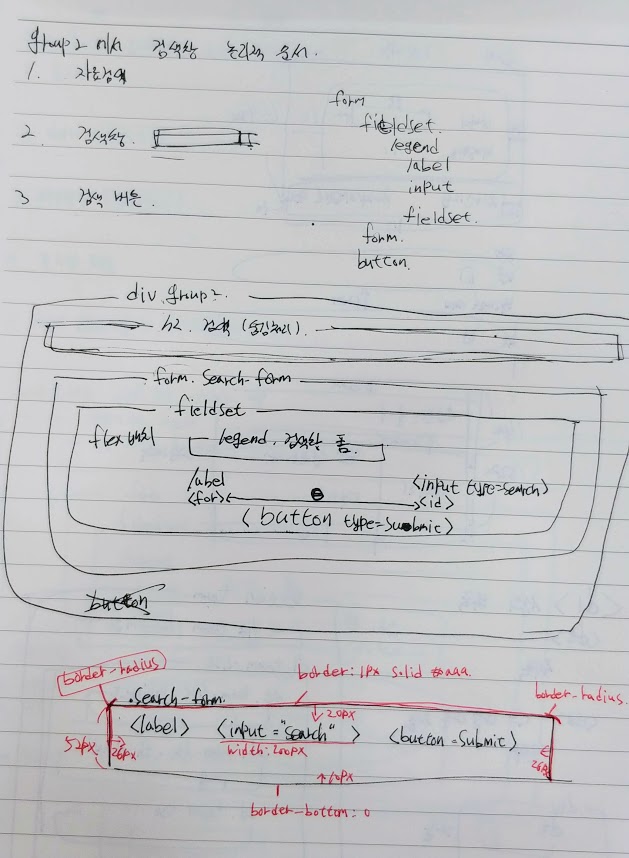 group2 에서 검색창 논리적 순서.
1. 자료검색
2. 검색창.
3 검색 버튼.
form
fieldset.
legend
label
input
fieldset.
form.
button.
div.group2.
h2. 검색 (숨김처리).
form. Search-form
fieldset
flex 배치
legend. 검색창 폼.
label
<input type=search>
<for>
<id>
< button type=Submit>
button
border-radius
border: 1px solid #aaa.
border-radius.
.search-form.
20px
<label> <input ="search" > <button =Submit>
52px
26px
width: 200px
26px
10px
border-bottom: 0